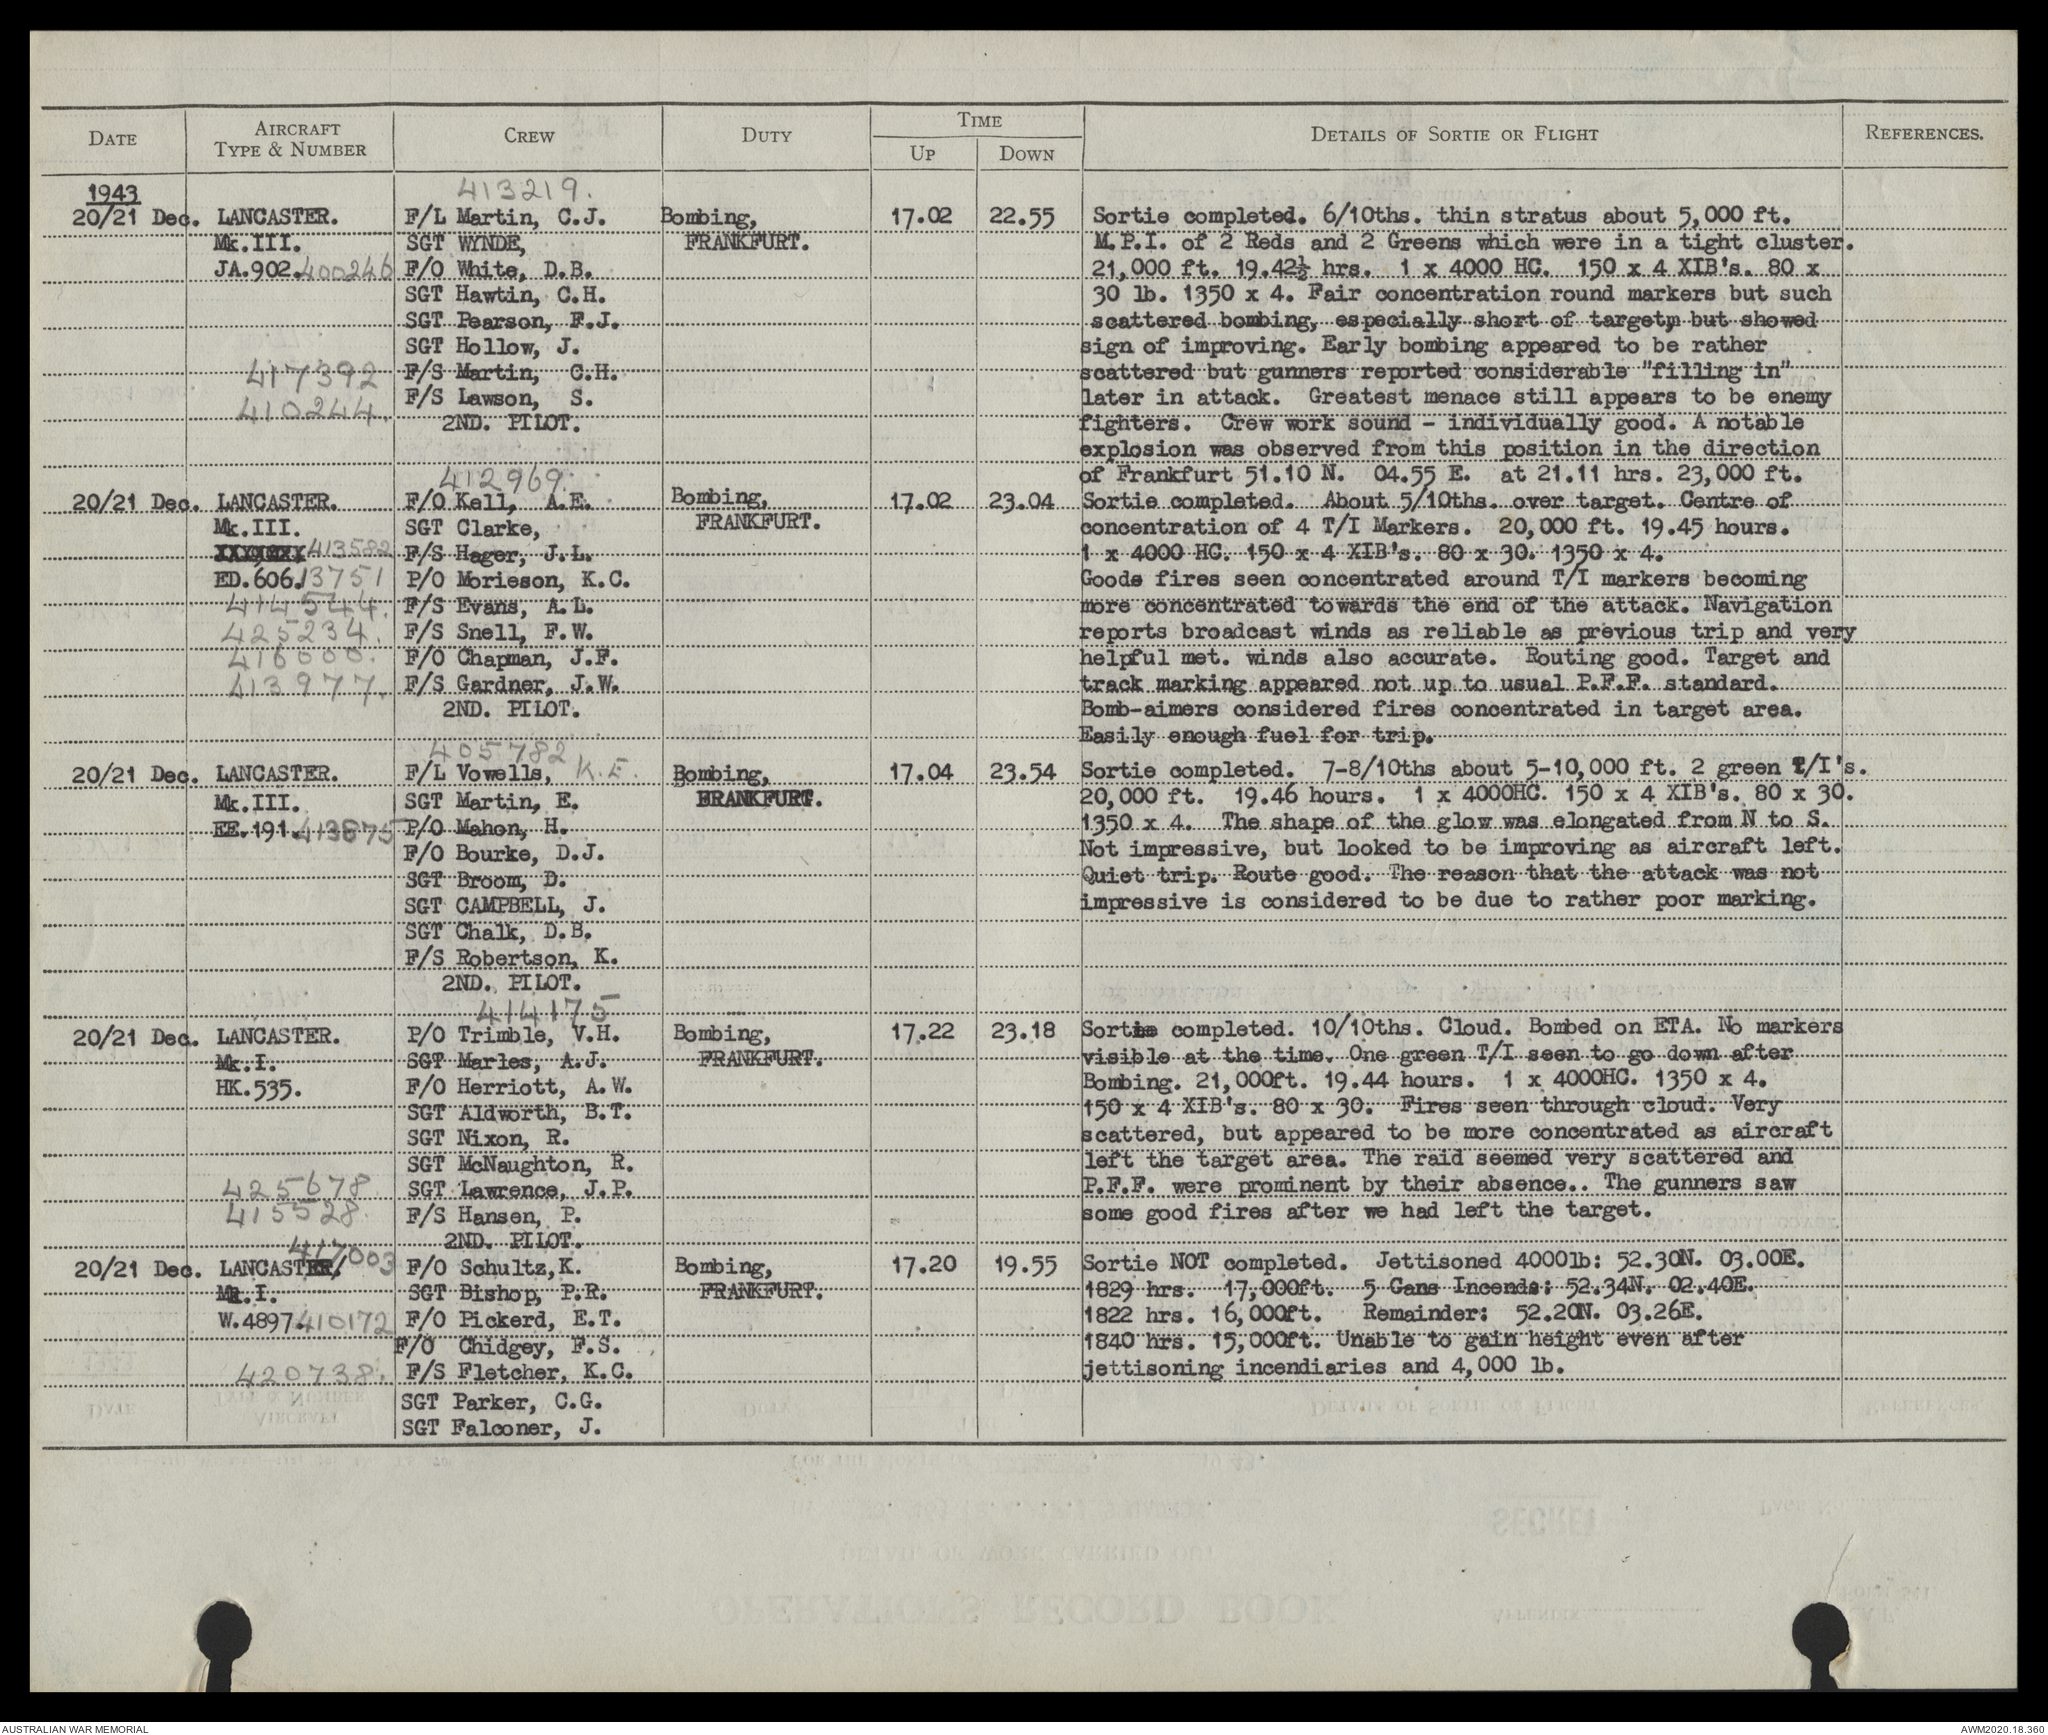 DATE
AIRCRAFT TYPE & NUMBER
CREW
DUTY
TIME
UP
DOWN
DETAILS OF SORTIE OR FLIGHT
REFERENCES.
1943
20/21 Dec. LANCASTER.
Mk.III.
JA.902. 400246
417392
410244.
413219.
F/L Martin, C.J.
SGT WYNDE,
F/O White, D.B.
SGT Hawtin, C.H.
SGT Pearson, F.J.
SGT Hollow, J.
F/S Martin, C.H.
F/S Lawson, S.
2ND. PILOT.
Bombing,
FRANKFURT.
17.02
22.55
Sortie completed. 6/10ths. thin stratus about 5,000 ft.
M.P.I. of 2 Reds and 2 Greens which were in a tight cluster.
21,000 ft. 19.42½ hrs. 1 x 4000 HC. 150 x 4 XIB's. 80 x
30 lb. 1350 x 4. Fair concentration round markers but such
scattered bombing, especially short of target, but showed
sign of improving. Early bombing appeared to be rather
scattered but gunners reported considerable "filling in"
later in attack. Greatest menace still appears to be enemy
fighters. Crew work sound - individually good. A notable
explosion was observed from this position in the direction
of Frankfurt 51.10 N. 04.55 E. at 21.11 hrs. 23,000 ft.
20/21 Dec. LANCASTER.
Mk.III.
413582
ED.606. 13751
414544.
425234.
416000.
413977.
412969.
F/O Kell, A.E.
SGT Clarke,
F/S Hager, J.L.
P/O Morieson, K.C.
F/S Evans, A.L.
F/S Snell, F.W.
F/O Chapman, J.F.
F/S Gardner, J.W.
2ND. PILOT.
Bombing,
FRANKFURT.
17.02
23.04
Sortie completed. About 5/10ths. over target. Centre of
concentration of 4 T/I Markers. 20,000 ft. 19.45 hours.
1 x 4000 HC. 150 x 4 XIB's. 80 x 30. 1350 x 4.
Goods fires seen concentrated around T/I markers becoming
more concentrated towards the end of the attack. Navigation
reports broadcast winds as reliable as previous trip and very
helpful met. winds also accurate. Routing good. Target and
track marking appeared not up to usual P.F.F. standard.
Bomb-aimers considered fires concentrated in target area.
Easily enough fuel for trip.
20/21 Dec. LANCASTER.
Mk.III.
EE.191. 413875
405782
F/L Vowells, K.E.
SGT Martin, E.
P/O Mahon, H.
F/O Bourke, D.J.
SGT Broom, D.
SGT CAMPBELL, J.
SGT Chalk, D.B.
F/S Robertson, K.
2ND. PILOT.
Bombing,
FRANKFURT.
17.04
23.54
Sortie completed. 7-8/10ths about 5-10,000 ft. 2 green T/I's.
20,000 ft. 19.46 hours. 1 x 4000HC. 150 x 4 XIB's. 80 x 30.
1350 x 4. The shape of the glow was elongated from N to S.
Not impressive, but looked to be improving as aircraft left.
Quiet trip. Route good. The reason that the attack was not
impressive is considered to be due to rather poor marking.
20/21 Dec. LANCASTER.
Mk.I.
HK.535.
425678
415528.
414175
P/O Trimble, V.H.
SGT Marles, A.J.
F/O Herriott, A.W.
SGT Aldworth, B.T.
SGT Nixon, R.
SGT McNaughton, R.
SGT Lawrence, J.P.
F/S Hansen, P.
2ND. PILOT.
Bombing,
FRANKFURT.
17.22
23.18
Sortie completed. 10/10ths. Cloud. Bombed on ETA. No markers
visible at the time. One green T/I seen to go down after
Bombing. 21,000ft. 19.44 hours. 1 x 4000HC. 1350 x 4.
150 x 4 XIB's. 80 x 30. Fires seen through cloud. Very
scattered, but appeared to be more concentrated as aircraft
left the target area. The raid seemed very scattered and
P.F.F. were prominent by their absence.. The gunners saw
some good fires after we had left the target.
417003
20/21 Dec. LANCASTER.
Mk.I.
W.4897. 410172
420738.
F/O Schultz,K.
SGT Bishop, P.R.
F/O Pickerd, E.T.
F/O Chidgey, F.S.
F/S Fletcher, K.C.
SGT Parker, C.G.
SGT Falconer, J.
Bombing,
FRANKFURT.
17.20
19.55
Sortie NOT completed. Jettisoned 4000lb: 52.30N. 03.00E.
1829 hrs. 17,000ft. 5 Cans Incends: 52.34N. 02.40E.
1822 hrs. 16,000ft. Remainder: 52.20N. 03.26E.
1840 hrs. 15,000ft. Unable to gain height even after
jettisoning incendiaries and 4,000 lb.
AUSTRALIAN WAR MEMORIAL
AWM2020.18.360